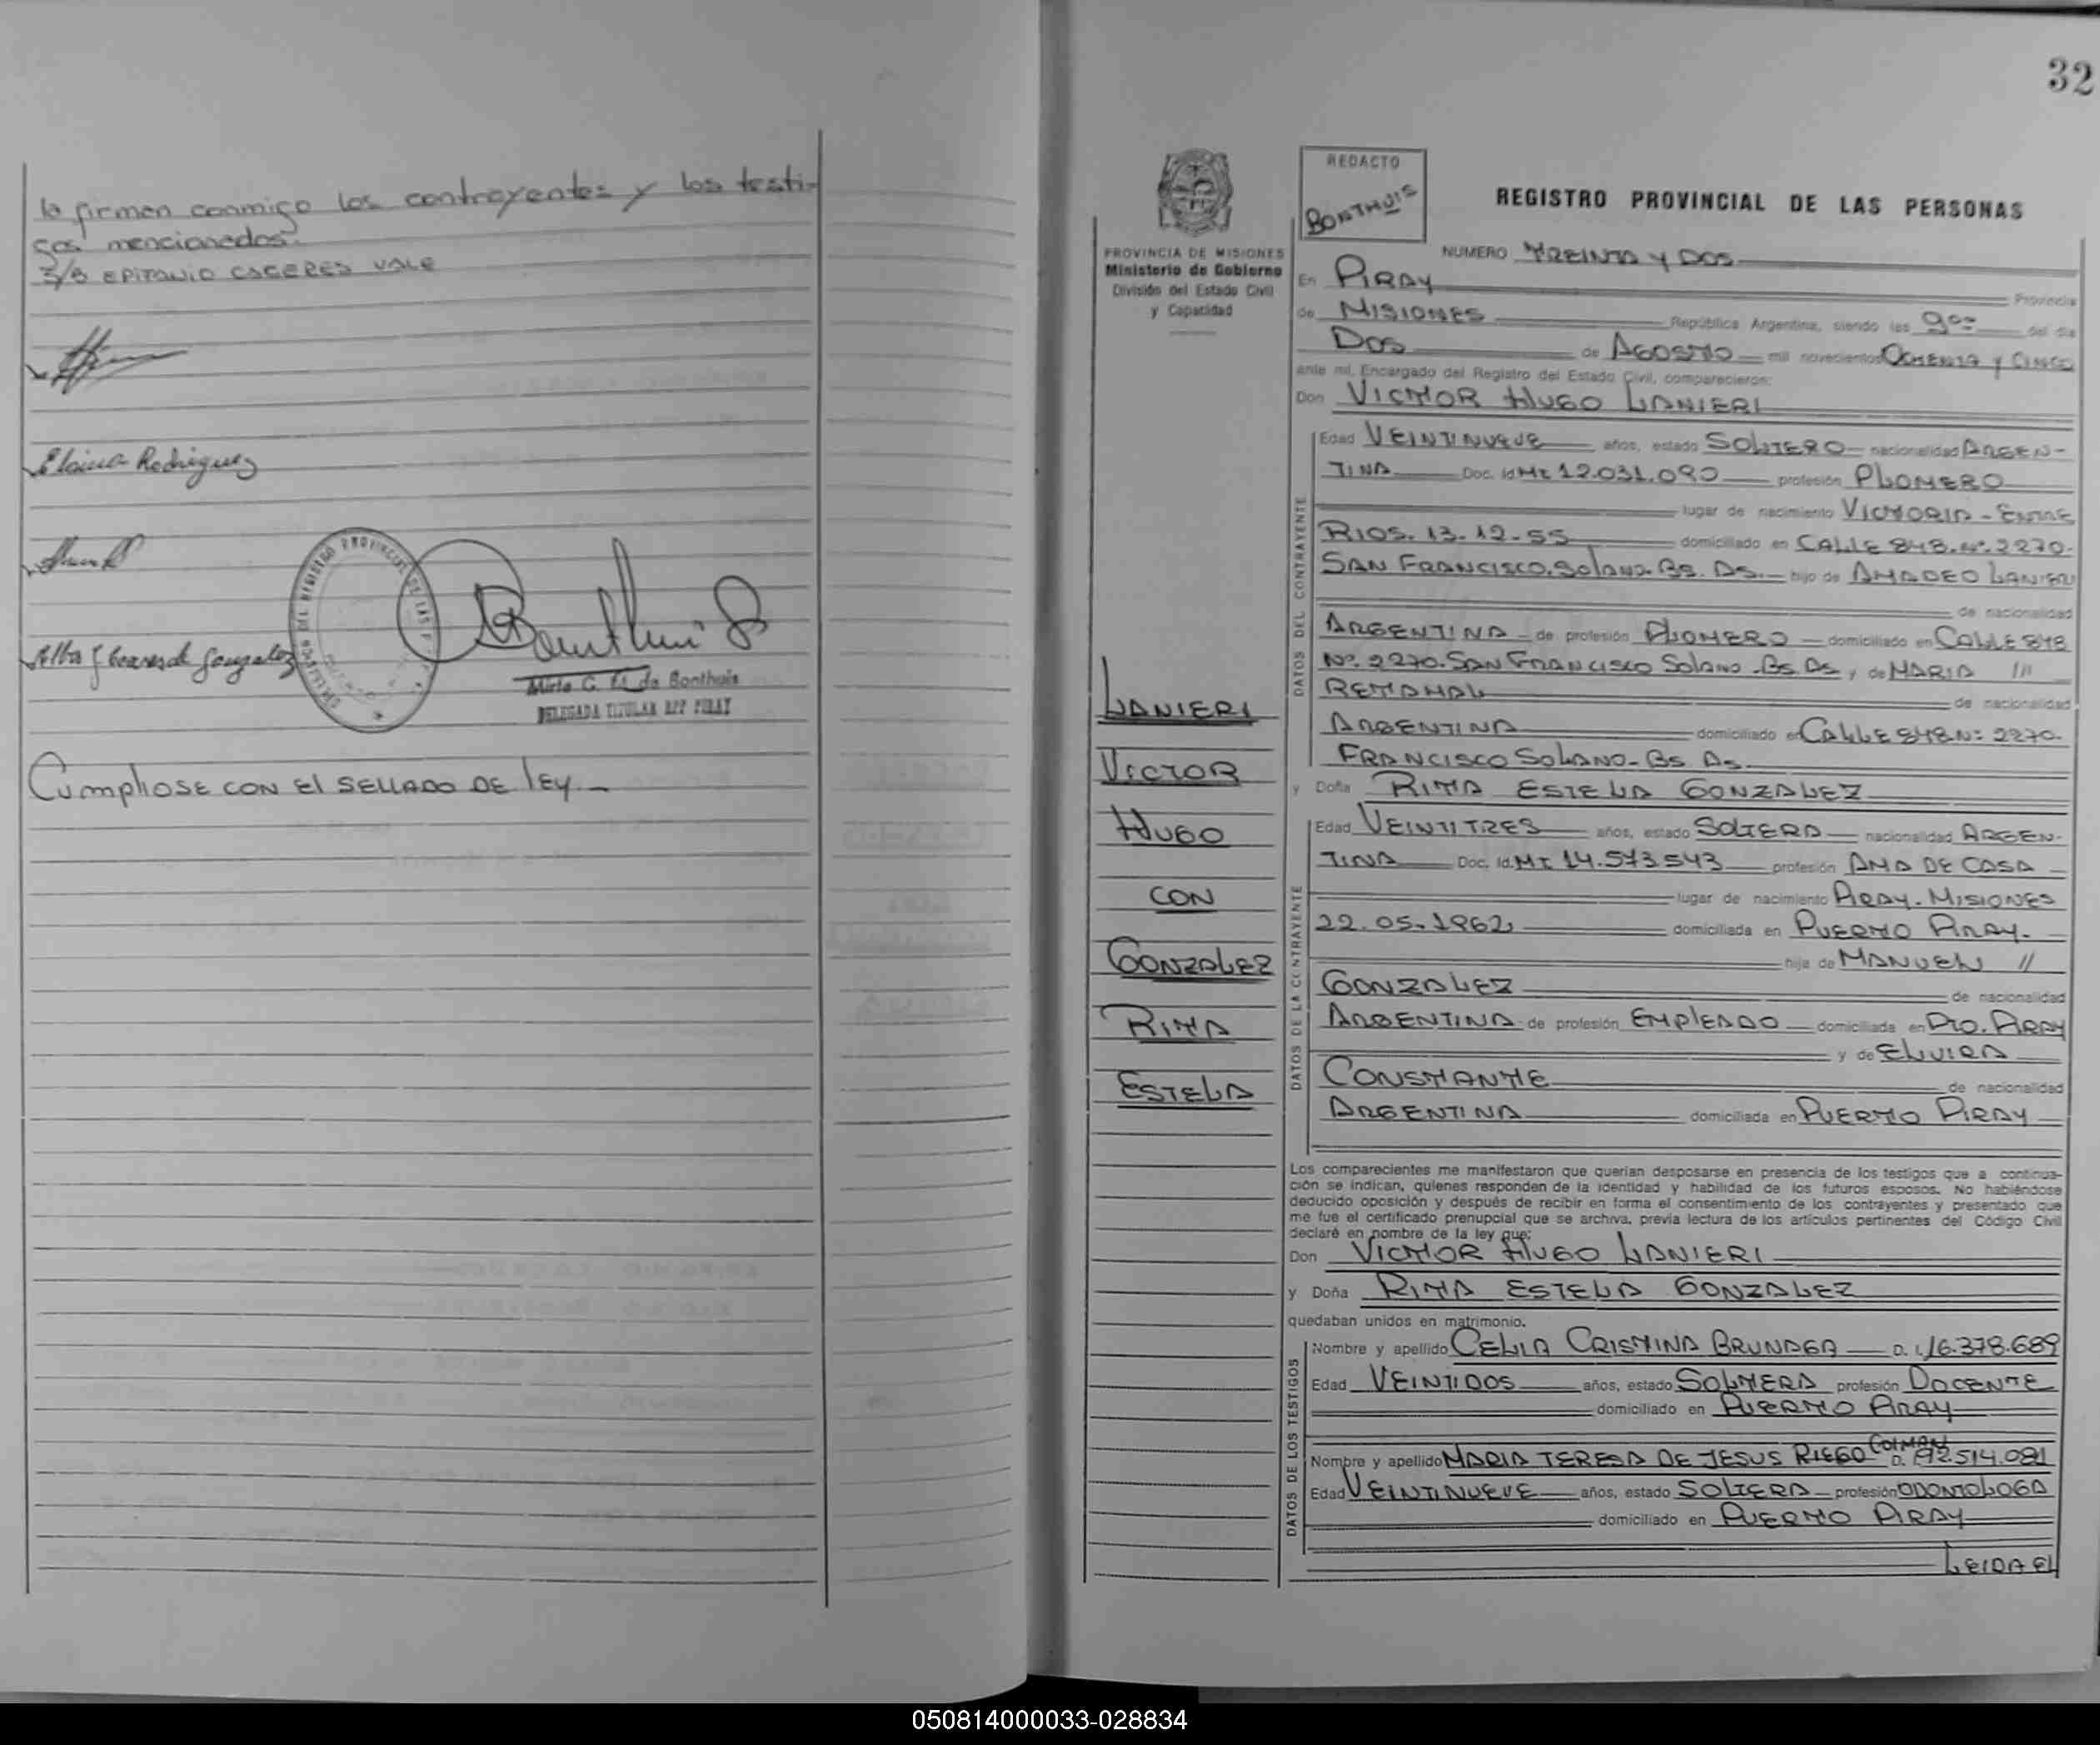 la firman conmigo los contrayentes y los testi-
gos mencionados.
S/B EPIFANIO CACERES VALE
Elaina Rodriguez
Mirta G. de Bonthuis
DELEGADA TITULAR RPP PIRAY
Cumpliose CON El SELLADO DE lEy.-
32
REDACTO
BONTHUIS
REGISTRO PROVINCIAL DE LAS PERSONAS
PROVINCIA DE MISIONES
Ministerio de Gobierno
División del Estado Civil
y Capacidad
NUMERO TREINTA Y DOS
En PIRAY Provincia
de MISIONES República Argentina, siendo las 9°° del día
DOS de AGOSTO mil novecientos OCHENTA Y CINCO
ante mí, Encargado del Registro del Estado Civil, comparecieron:
Don VICTOR HUGO LANIERI
DATOS DEL CONTRAYENTE
Edad VEINTINUEVE años, estado SOLTERO nacionalidad ARGEN-
TINA Doc. Id. MI 12.031.090 profesión PLOMERO
lugar de nacimiento VICTORIA - ENTRE
RIOS. 13.12.55 domiciliado en CALLE 848. N°. 2270.
SAN FRANCISCO. Solano. BS. AS. hijo de AMADEO LANIERI
de nacionalidad
ARGENTINA de profesión PLOMERO domiciliado en CALLE 848
N°. 2270. SAN FRANCISCO Solano. BS. AS y de MARIA ///
RETAMAL de nacionalidad
ARGENTINA domiciliado en CALLE 848 N: 2270.
FRANCISCO SOLANO-BS AS.
y Doña RITA ESTELA GONZALEZ
DATOS DE LA CONTRAYENTE
Edad VEINTITRES años, estado SOLTERA nacionalidad ARGEN-
TINA Doc. Id. MI 14.573543 profesión AMA DE CASA
lugar de nacimiento PIRAY. MISIONES
22.05.1962. domiciliada en PUERTO PIRAY.
hija de MANUEL //
GONZALEZ de nacionalidad
ARGENTINA de profesión EMPLEADO domiciliada en PTO. PIRAY
y de ELVIRA
CONSTANTE de nacionalidad
ARGENTINA domiciliada en PUERTO PIRAY
LANIERI
VICTOR
HUGO
CON
GONZALEZ
RITA
ESTELA
Los comparecientes me manifestaron que querían desposarse en presencia de los testigos que a continua-
ción se indican, quienes responden de la identidad y habilidad de los futuros esposos. No habiéndose
deducido oposición y después de recibir en forma el consentimiento de los contrayentes y presentado que
me fue el certificado prenupcial que se archiva, previa lectura de los artículos pertinentes del Código Civil
declaré en nombre de la ley que:
Don VICTOR HUGO LANIERI
y Doña RITA ESTELA GONZALEZ
quedaban unidos en matrimonio.
DATOS DE LOS TESTIGOS
Nombre y apellido CELIA CRISTINA BRUNAGA D. I. 16.378.689
Edad VEINTIDOS años, estado SOLTERA profesión DOCENTE
domiciliado en PUERTO PIRAY
Nombre y apellido MARIA TERESA DE JESUS RIEGO COLMAN D. I. 92.514.081
Edad VEINTINUEVE años, estado SOLTERA profesión ODONTOLOGA
domiciliado en PUERTO PIRAY
LEIDA EL
050814000033-028834